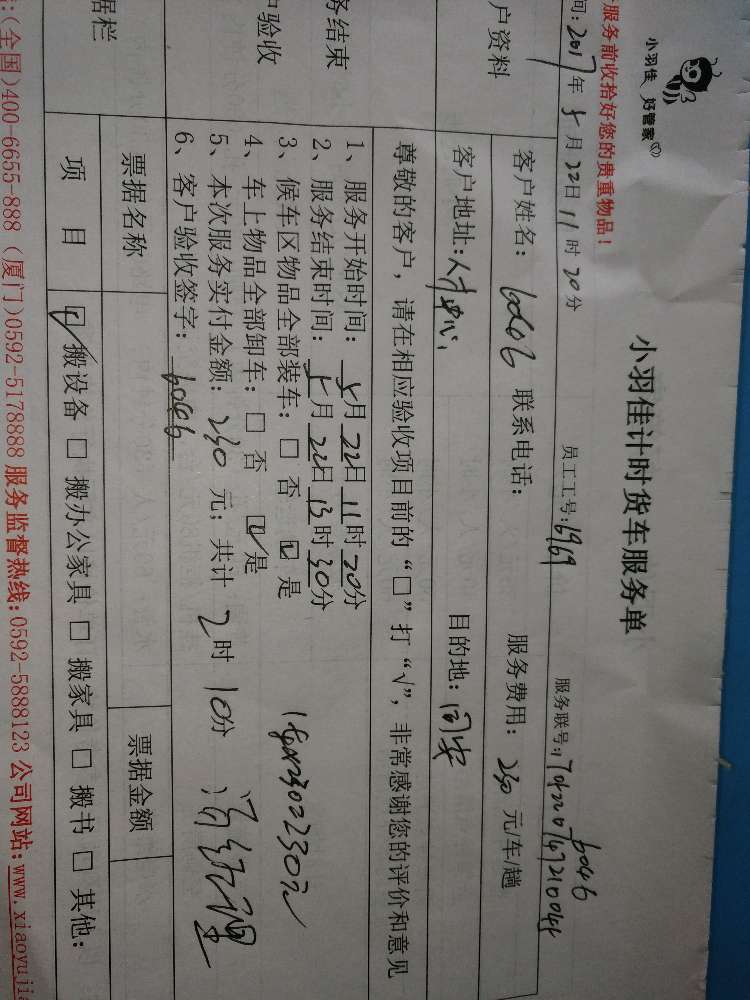 小羽佳 好管家
小羽佳计时货车服务单
服务前收拾好您的贵重物品！
间：2017年5月22日11时20分 员工工号：6969 服务联号：
6046
户资料
客户姓名：6046 联系电话： 服务费用：230元/车/趟
客户地址：人才中心 目的地：同安
尊敬的客户，请在相应验收项目前的“□”打“√”，非常感谢您的评价和意见
务结束
户验收
1、服务开始时间：5月22日11时20分
2、服务结束时间：5月22日13时30分
3、候车区物品全部装车：□ 否 ☑ 是
4、车上物品全部卸车：□ 否 ☑ 是
5、本次服务实付金额：230元；共计2时10分
6、客户验收签字：6046
据栏
票据名称 票据金额
项 目 ☑ 搬设备 □ 搬办公家具 □ 搬家具 □ 搬书 □ 其他：
：(全国)400-6655-888（厦门)0592-5178888 服务监督热线：0592-5888123 公司网站：www.xiaoyujia